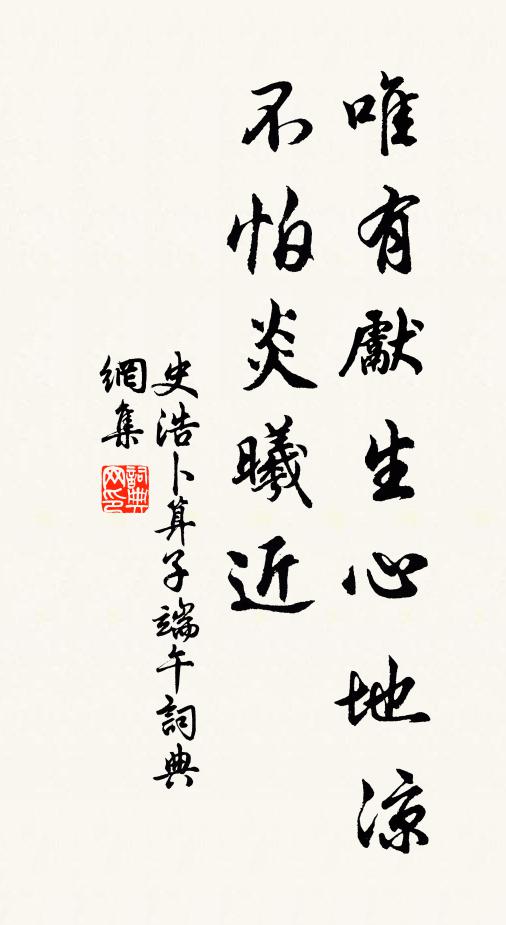 唯有獻生心地涼
不怕炎曦近
史浩卜算子端午詞典
網集
詞典
网印